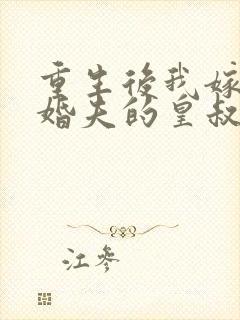 重生後我嫁
婚夫的皇叔
江參